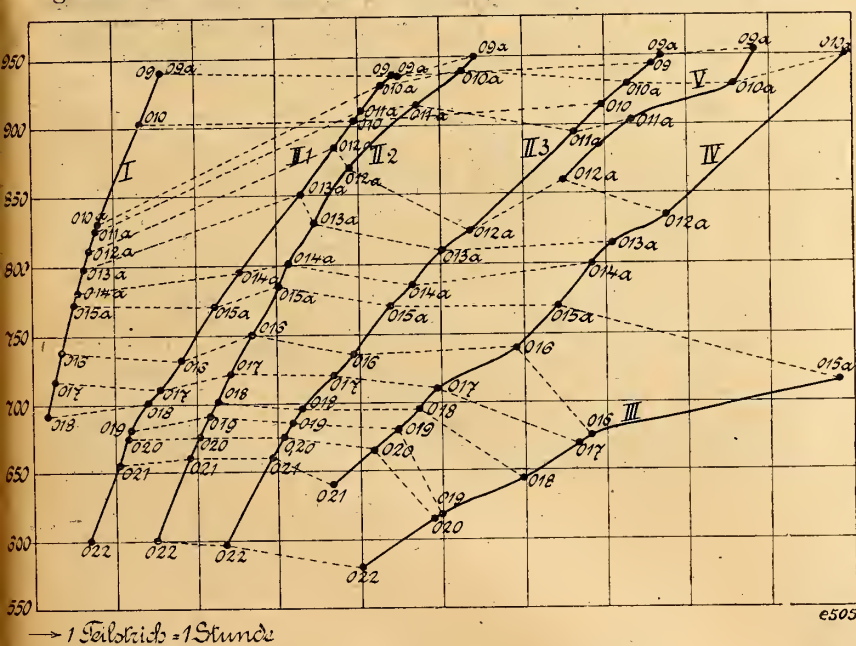 950
900
850
800
750
700
650
600
550
I
09
09a
010
010a
011a
012a
013a
014a
015a
016
017
018
II1
09
09a
010a
011a
010
012a
013a
014a
015a
016
017
018
019
020
021
022
II2
09a
010a
011a
012a
013a
014a
015a
016
017
018
019
020
021
022
II3
09a
09
010a
010
011a
012a
013a
014a
015a
016
017
018
019
020
021
022
V
09a
010a
011a
012a
IV
010a
012a
013a
014a
015a
016
017
018
019
020
021
III
015a
016
017
018
019
020
022
→ 1 Teilstrich = 1 Stunde
e505